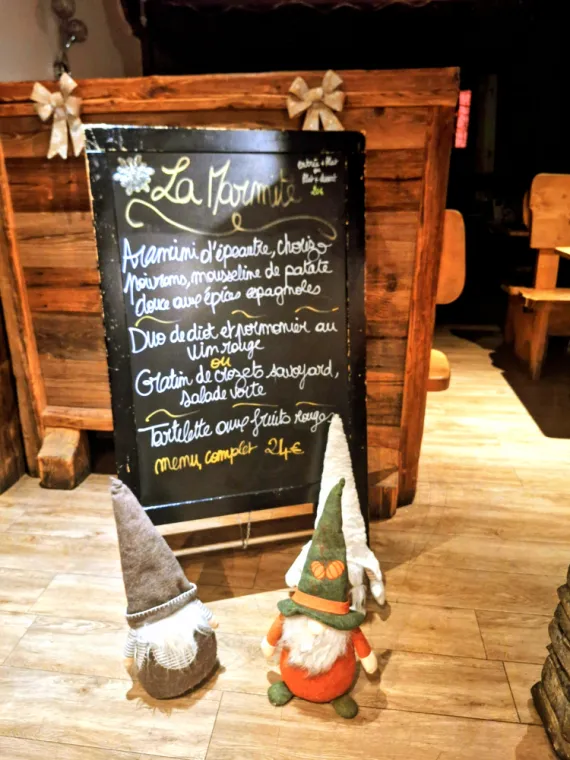 La Marmite
entrée + Plat
ou
Plat + dessert
Aramini d'épeautre, chorizo
poivrons, mousseline de patate
douce aux épices espagnoles
Duo de diot et pormonier au
vin rouge
ou
Gratin de crozets savoyard,
salade verte
Tartelette aux fruits rouges
menu complet 24€